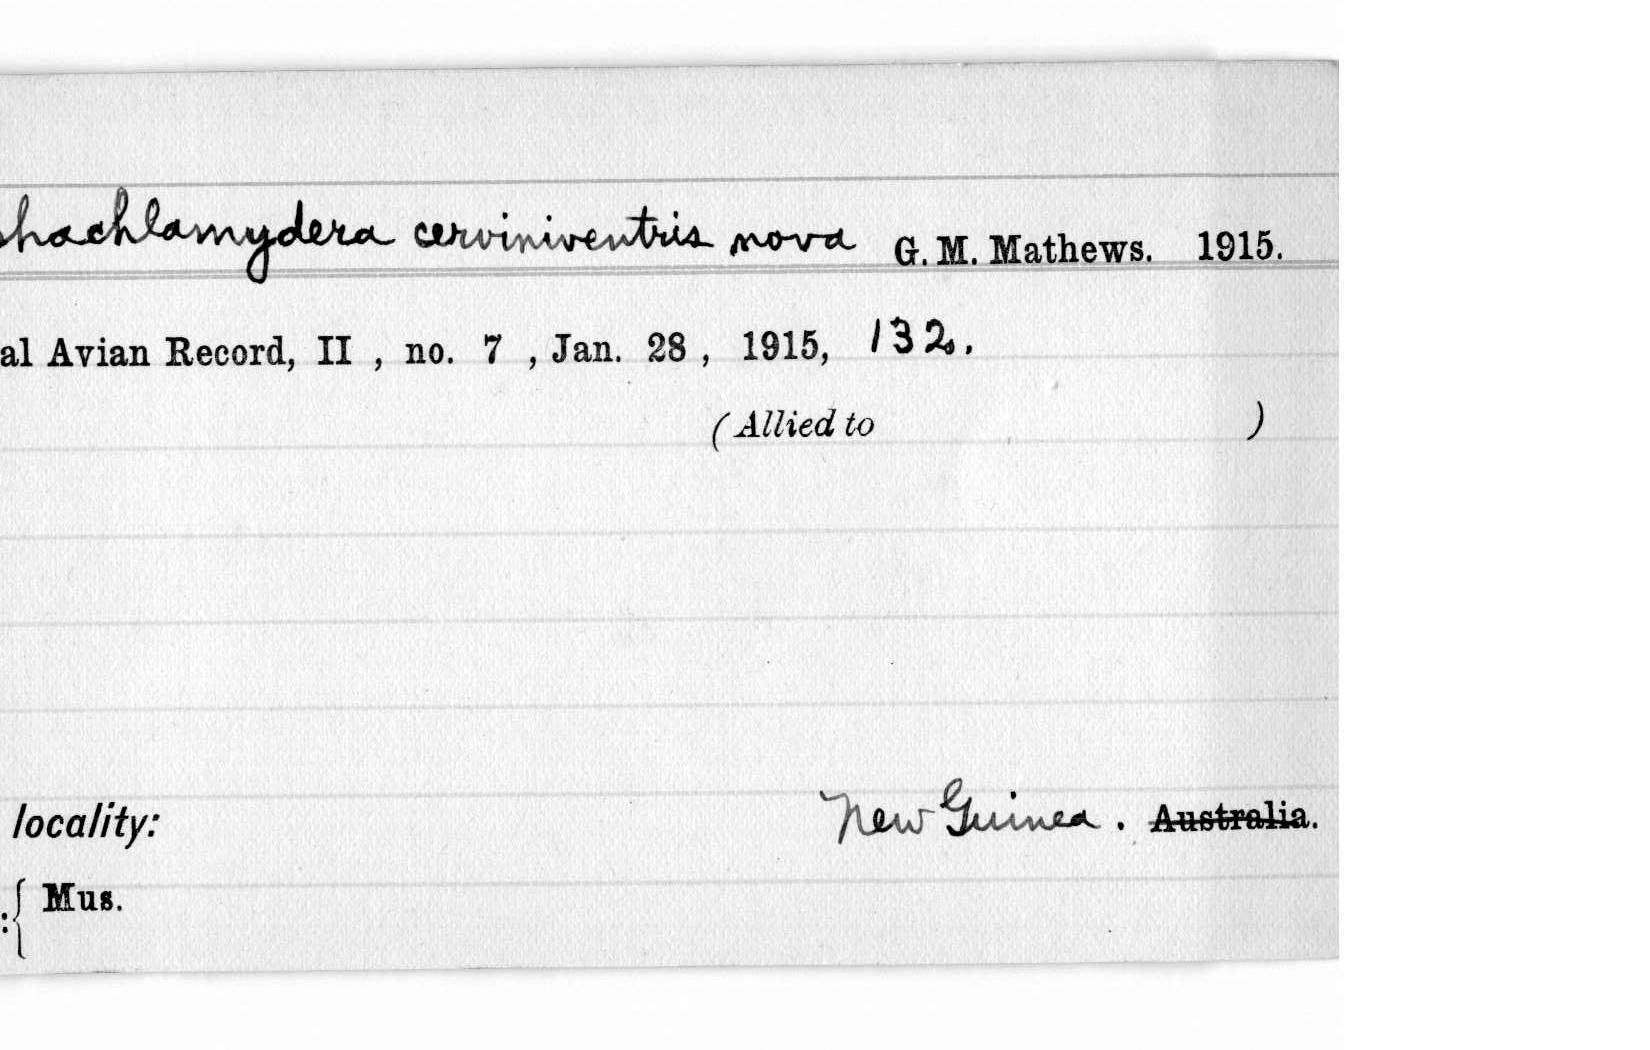 hachlamydera cerviniventris nova G. M. Mathews. 1915.
al Avian Record, II , no. 7 , Jan. 28 , 1915, 132.
(Allied to )
locality: New Guinea . Australia.
:{ Mus.